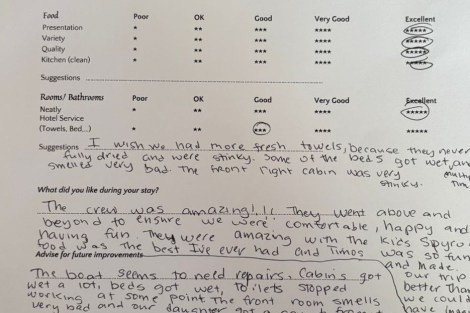 Food Poor OK Good Very Good Excellent
Presentation * ** *** **** *****
Variety * ** *** **** *****
Quality * ** *** **** *****
Kitchen (clean) * ** *** **** *****
Suggestions
Rooms/ Bathrooms Poor OK Good Very Good Excellent
Neatly * ** *** **** *****
Hotel Service
(Towels, Bed...) * ** *** **** *****
Suggestions I wish we had more fresh towels, because they never
fully dried and were stinky. Some of the beds got wet, and
smelled very bad. The front right cabin was very
stinky.
What did you like during your stay?
The crew was amazing!!! They went above and
beyond to ensure we were comfortable, happy and
having fun. They were amazing with the kids Spyro
food was the best I've ever had and Timos was so fun
and made
our trip
better than
we could
have
Advise for future improvements
The boat seems to need repairs. Cabins got
wet a lot, beds got wet, toilets stopped
working at some point. The front room smells
very bad and our daughter got a